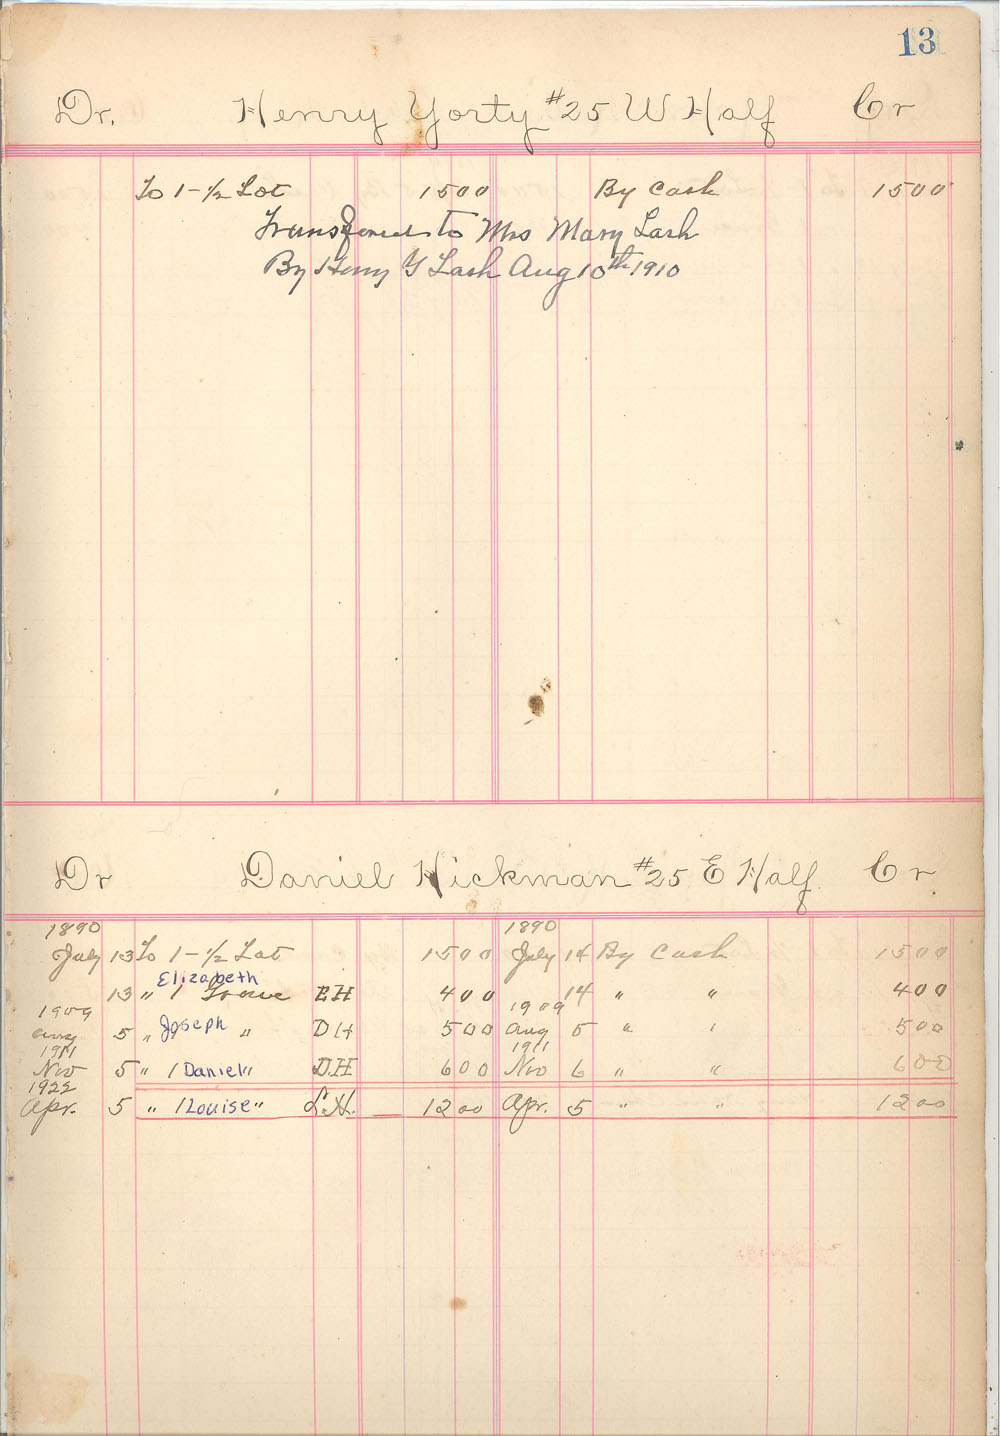 13
Dr. Henry Yorty #25 W Half Cr
To 1-½ Lot 1500 By Cash 1500
Transfered to Mrs Mary Lash
By Henry Y Lash Aug 10th 1910
Dr Daniel Hickman #25 E Half Cr.
1890 1890
July 13 To 1-½ Lot 1500 July 14 By Cash 1500
Elizabeth
13 " 1 Grave EH 400 14 " " 400
1909 1909
Aug 5 " Joseph " DH 500 Aug 5 " " 500
1911 1911
Nov 5 " 1 Daniel " D.H 600 Nov 6 " " 600
1922
Apr. 5 " 1 Louise " L.H. 1200 Apr. 5 " " 1200